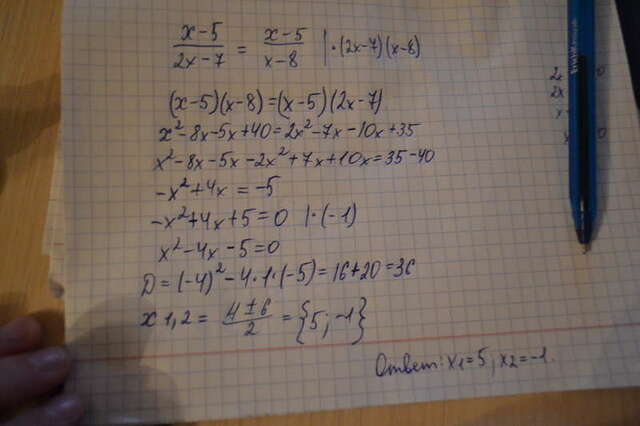 x-5/2x-7 = x-5/x-8 | ·(2x-7)(x-8)
(x-5)(x-8)=(x-5)(2x-7)
x²-8x-5x+40=2x²-7x-10x+35
x²-8x-5x-2x²+7x+10x=35-40
-x²+4x=-5
-x²+4x+5=0 |·(-1)
x²-4x-5=0
D=(-4)²-4·1·(-5)=16+20=36
x1,2=4±6/2={5;-1}
Ответ: x₁=5; x₂=-1.